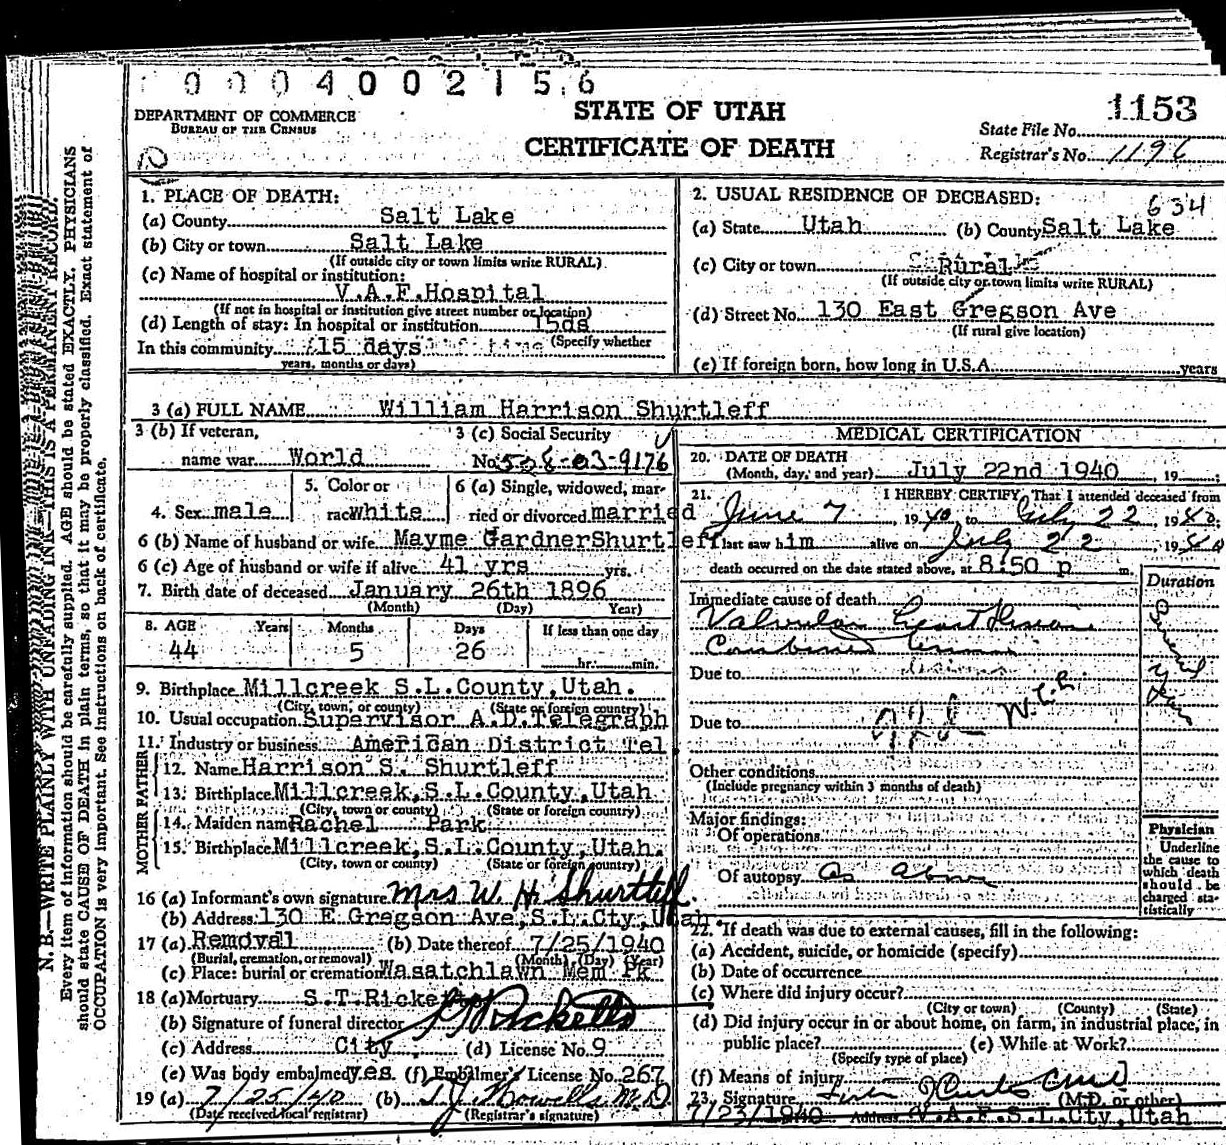 0 0 0 4 0 0 2 1 5 6
DEPARTMENT OF COMMERCE
BUREAU OF THE CENSUS
STATE OF UTAH
CERTIFICATE OF DEATH
1153
State File No.
Registrar's No. 1196
N. B.—WRITE PLAINLY WITH UNFADING INK—THIS IS A PERMANENT RECORD.
Every item of information should be carefully supplied. AGE should be stated EXACTLY. PHYSICIANS
should state CAUSE OF DEATH in plain terms, so that it may be properly classified. Exact statement of
OCCUPATION is very important. See instructions on back of certificate.
1. PLACE OF DEATH:
(a) County Salt Lake
(b) City or town Salt Lake
(If outside city or town limits write RURAL)
(c) Name of hospital or institution:
V.A.F. Hospital
(If not in hospital or institution give street number or location)
(d) Length of stay: In hospital or institution 15ds
(Specify whether
In this community 15 days
years, months or days)
2. USUAL RESIDENCE OF DECEASED: 634
(a) State Utah (b) County Salt Lake
(c) City or town Rural
(If outside city or town limits write RURAL)
(d) Street No. 130 East Gregson Ave
(If rural give location)
(e) If foreign born, how long in U.S.A. years
3 (a) FULL NAME William Harrison Shurtleff
3 (b) If veteran,
name war World
3 (c) Social Security
No. 528-03-9176
4. Sex male
5. Color or
race white
6 (a) Single, widowed, mar-
ried or divorced married
6 (b) Name of husband or wife Mayme GardnerShurtleff
6 (c) Age of husband or wife if alive 41 yrs yrs.
7. Birth date of deceased January 26th 1896
(Month) (Day) Year)
8. AGE Years Months Days If less than one day
44 5 26
hr. min.
9. Birthplace Millcreek S.L.County,Utah.
(City, town, or county) (State or foreign country)
10. Usual occupation Supervisor A.D.Telegraph
11. Industry or business American District Tel.
MOTHER FATHER
12. Name Harrison S. Shurtleff
13. Birthplace Millcreek,S.L.County,Utah
(City, town or county) (State or foreign country)
14. Maiden name Rachel Park
15. Birthplace Millcreek,S.L.County,Utah.
(City, town or county) (State or foreign country)
16 (a) Informant's own signature Mrs W. H. Shurtleff.
(b) Address 130 E Gregson Ave,S.L.Cty,Utah.
17 (a) Removal (b) Date thereof 7/25/1940
(Burial, cremation, or removal) (Month) (Day) (Year)
(c) Place: burial or cremation Wasatchlawn Mem Pk
18 (a) Mortuary S.T.Ricketts
(b) Signature of funeral director Ricketts
(c) Address City (d) License No. 9
(e) Was body embalmed yes (f) Embalmer's License No. 267
19 (a) 7/25/40 (b) T.J. Howells M.D.
(Date received local registrar) (Registrar's signature)
MEDICAL CERTIFICATION
20. DATE OF DEATH
(Month, day, and year) July 22nd 1940, 19
21. I HEREBY CERTIFY, That I attended deceased from
June 7, 1940, to July 22, 1940.
I last saw him alive on July 22, 1940
death occurred on the date stated above, at 8:50 p m.
Duration
Immediate cause of death
Valvular heart
Combined
Due to
Due to
W.C.R.
Other conditions
(Include pregnancy within 3 months of death)
Major findings:
Of operations
Of autopsy As above
Physician
Underline
the cause to
which death
should be
charged sta-
tistically
22. If death was due to external causes, fill in the following:
(a) Accident, suicide, or homicide (specify)
(b) Date of occurrence
(c) Where did injury occur?
(City or town) (County) (State)
(d) Did injury occur in or about home, on farm, in industrial place, in
public place? (e) While at Work?
(Specify type of place)
(f) Means of injury
23. Signature
(M.D. or other)
7/23/1940 Address V.A.F.S.L.Cty,Utah